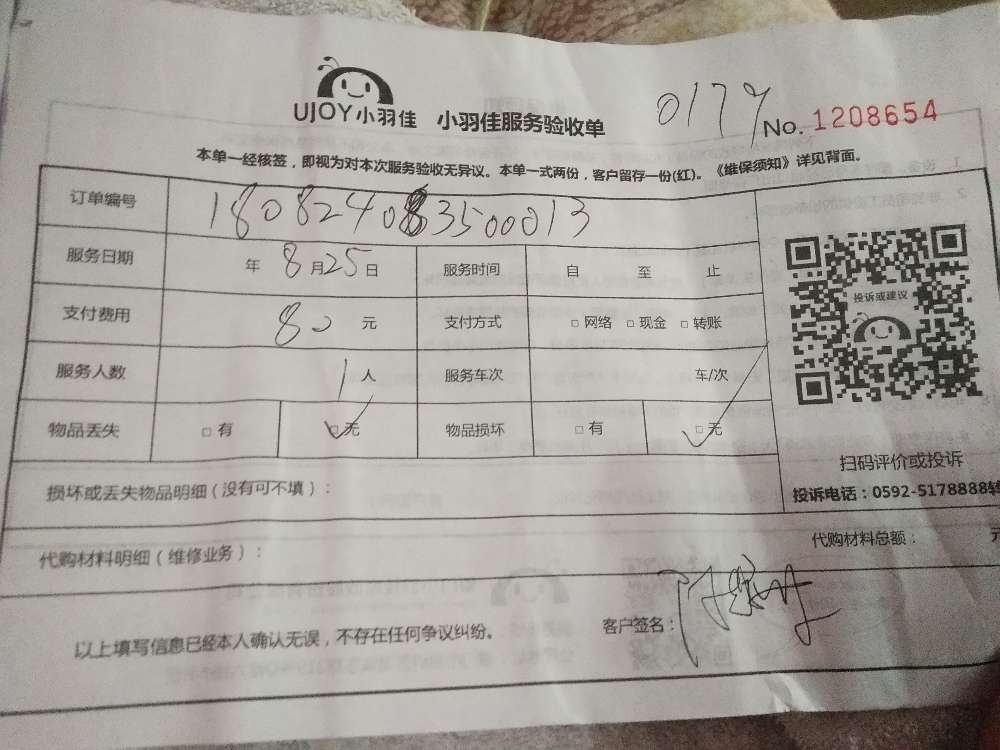 UJOY小羽佳 小羽佳服务验收单 0179 No. 1208654
本单一经核签，即视为对本次服务验收无异议。本单一式两份，客户留存一份(红)。《维保须知》详见背面。
订单编号 180824083500013
服务日期 年 8月25日 服务时间 自 至 止
支付费用 80 元 支付方式 □网络 □现金 □转账
服务人数 1人 服务车次 车/次
物品丢失 □有 □无 物品损坏 □有 □无
投诉或建议
扫码评价或投诉
投诉电话：0592-5178888转
损坏或丢失物品明细（没有可不填）：
代购材料明细（维修业务）： 代购材料总额： 元
以上填写信息已经本人确认无误，不存在任何争议纠纷。 客户签名：